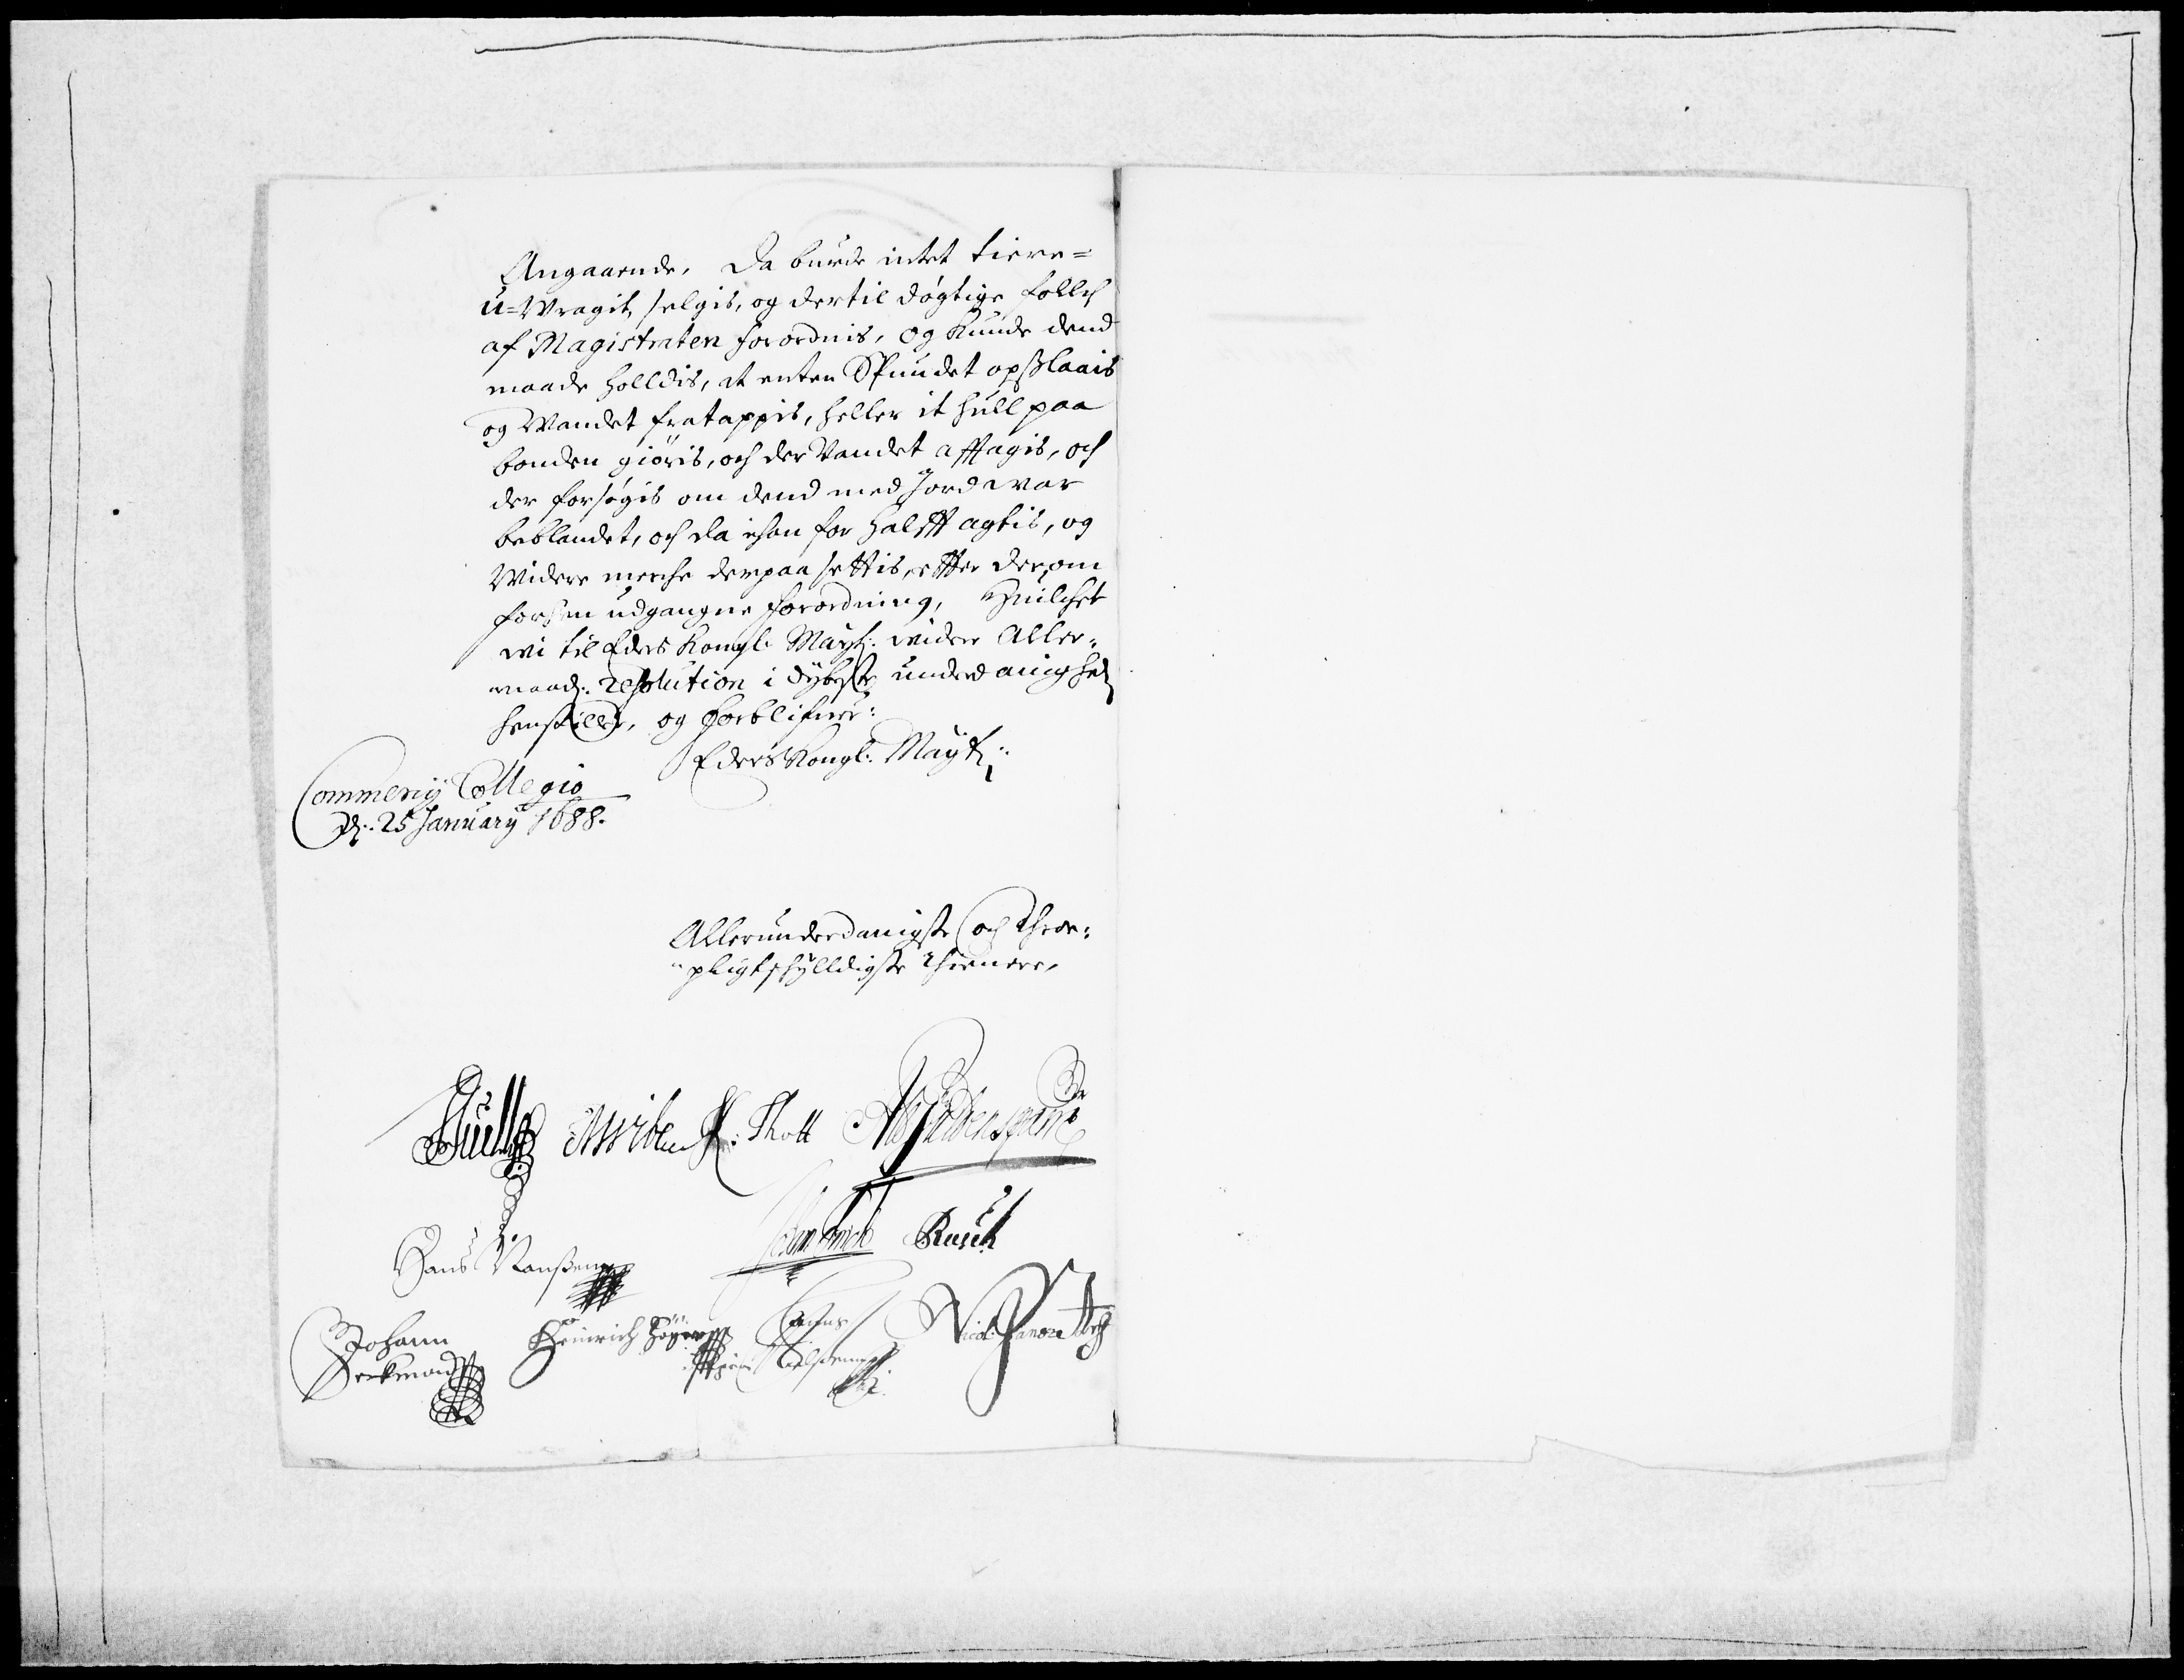 Angaaende, Da burde intet tiere=
u=Wragit selgis, og dertil døgtige follch
af Magistraten forordnis, og Kunde dend
maade holldis, at enten Spundet opslaais
og Wandet fratappis, heller it hull paa
bonden giøris, och der Vandet afftagis, och
der forsøgis om dend med Jord war
beblandet, och da ichon for halfft agtis, og
Widere merche derpaa settis, effter der om
forhen udgangne forordning, Huilchet
wi til Eders Kongl: Mayt: widere Aller:
naad: resolution i dybeste underdanighed
henstiller, og forblifuer:
Eders Kongl: Mayts:
Commercij Collegio
D: 25 January 1688.
Allerunderdanigste och Throe:
pligtschylldigste Thienere,
Thott
Hans Nanßen
Rasch
Johann
Heinrich